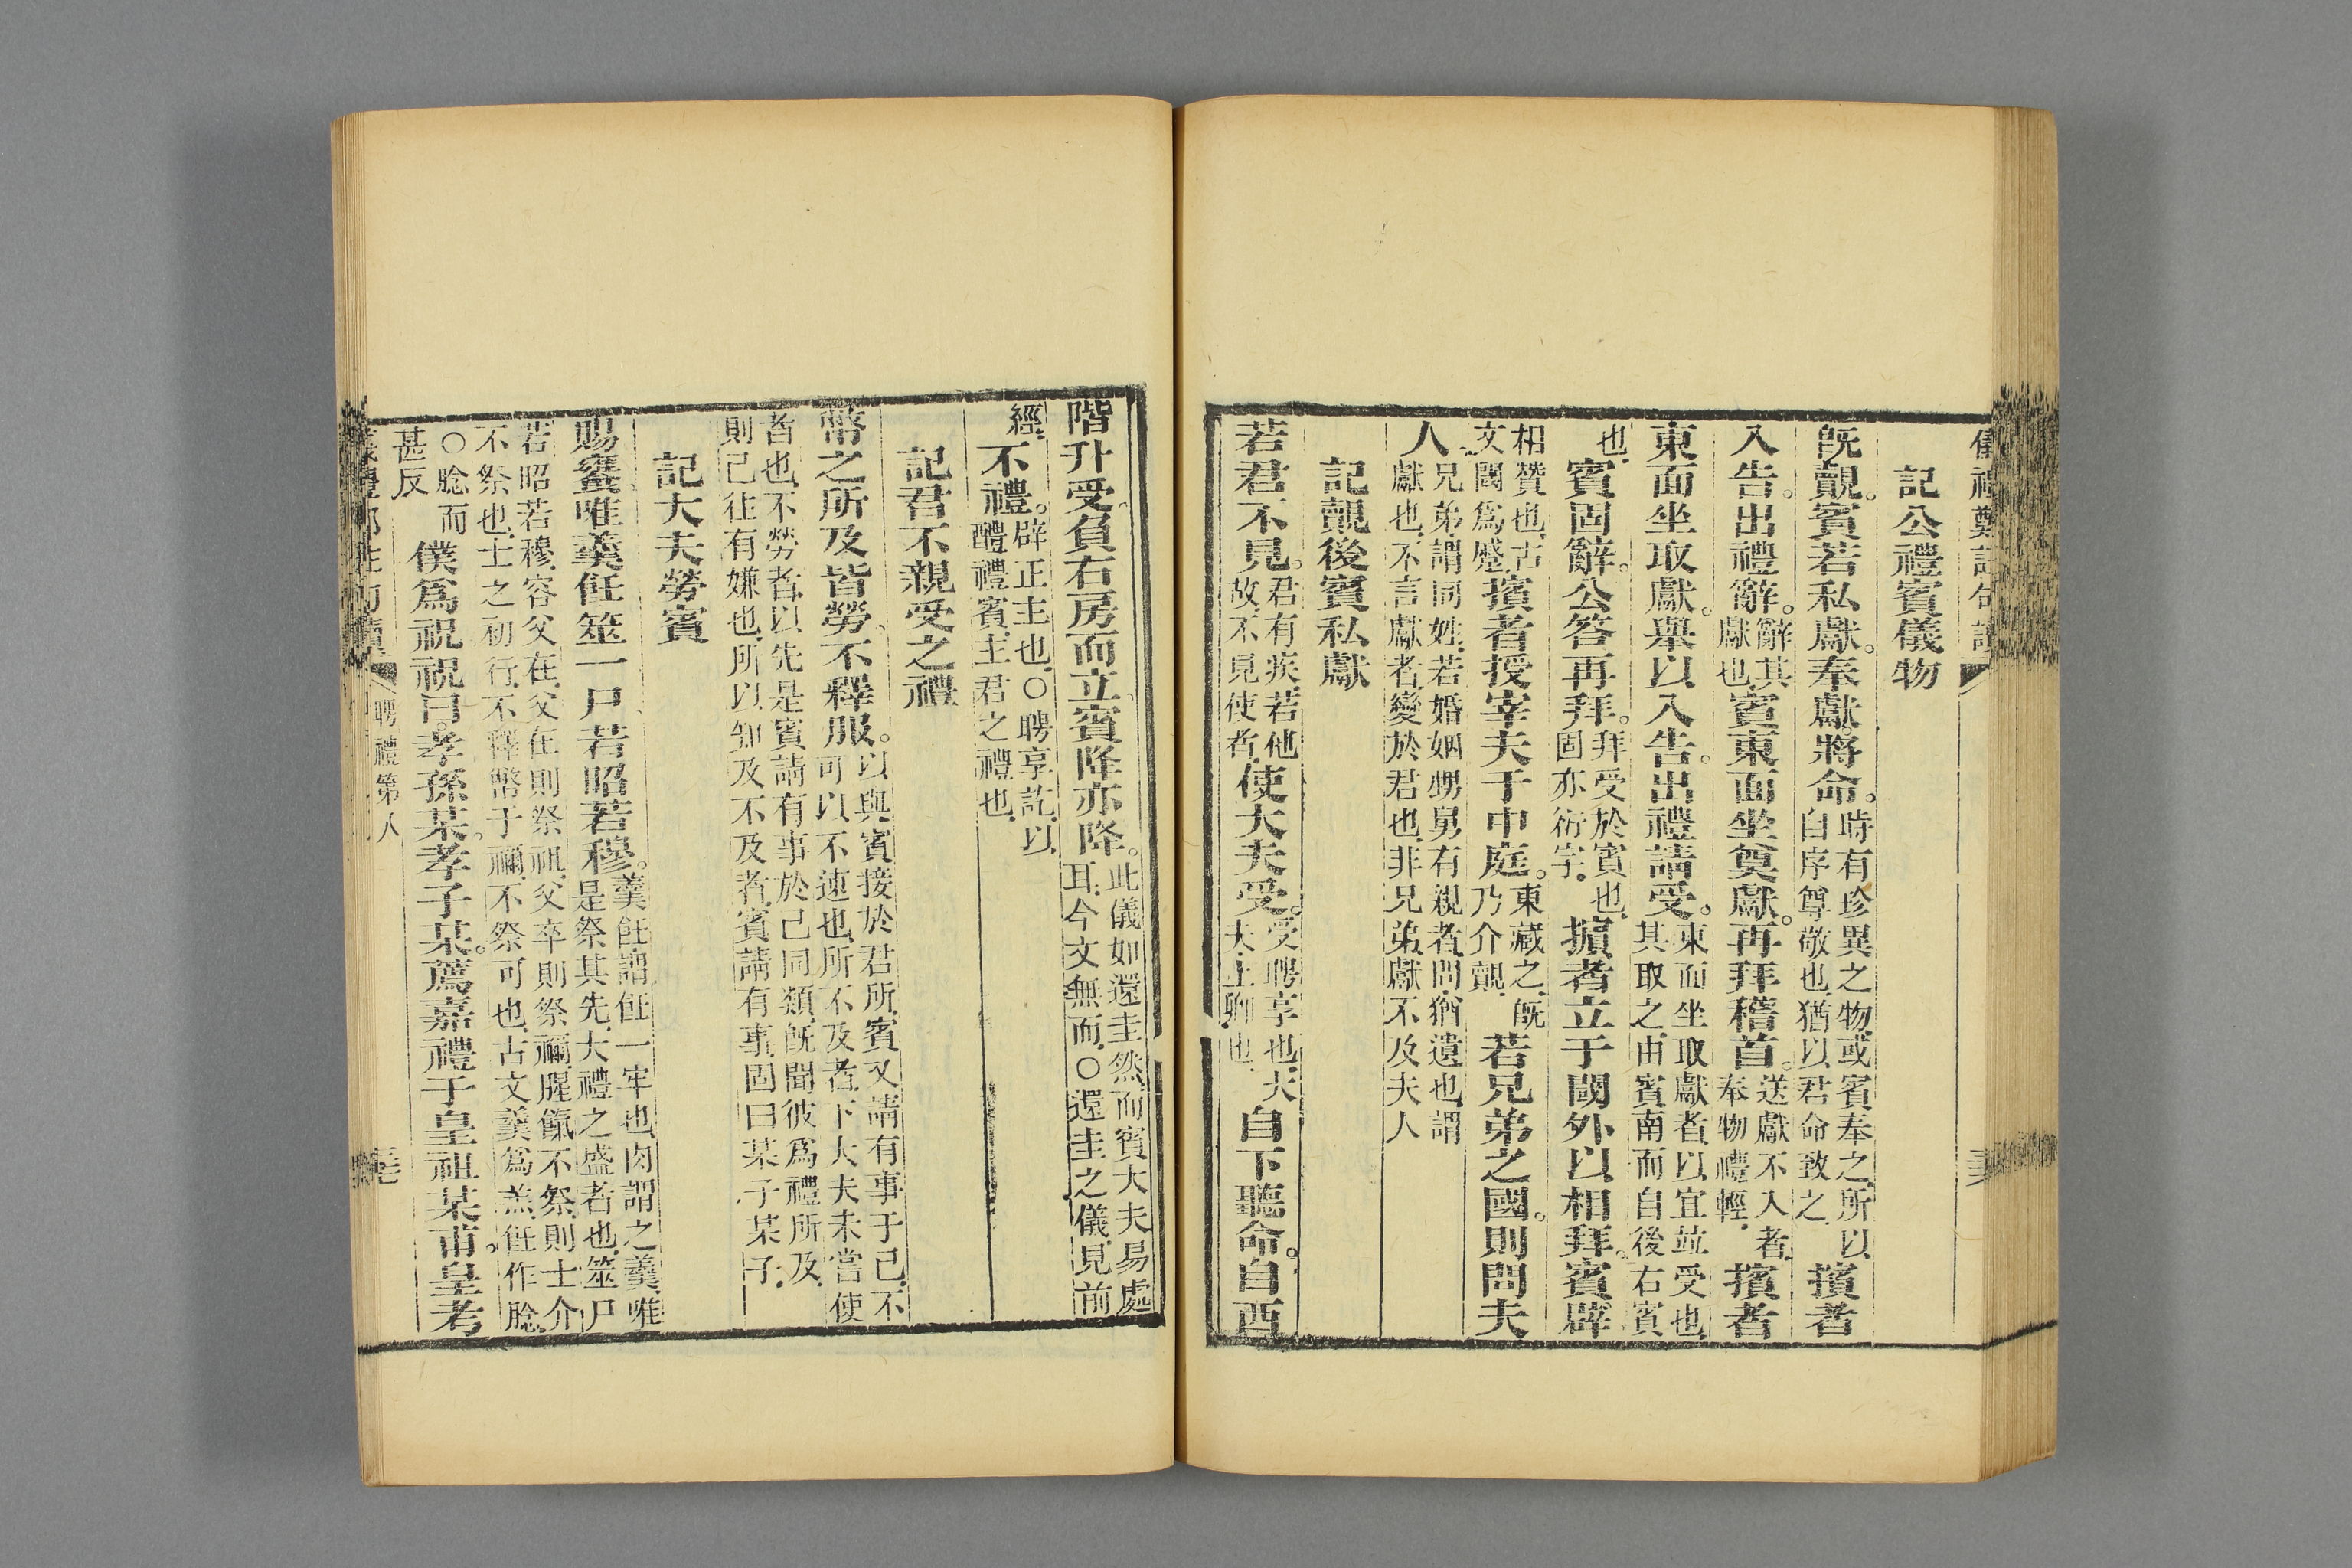 儀禮鄭註句讀
記公禮賓儀物
既覿。賓若私獻。奉獻。將命。時有珍異之物、或賓奉之、所以自序尊敬也、猶以君命致之、擯者
入告。出禮辭。辭其獻也、賓東面坐奠獻。再拜稽首。送獻不入者、奉物禮輕、擯者
東面坐取獻。舉以入告。出禮請受。東面坐取獻者、以宜竝受也、其取之、由賓南而自後右賓
也、賓固辭。公答再拜。拜受於賓也、固亦衍字、擯者立于閾外以相拜。賓辟
相贊也、古文閾爲蹙、擯者授宰夫于中庭。東藏之、既乃介覿、若兄弟之國。則問夫
人。兄弟、謂同姓、若婚姻甥舅有親者、問、猶遺也、謂獻也、不言獻者、變於君也、非兄弟、獻不及夫人
記覿後賓私獻
若君不見。君有疾、若他故、不見使者、使大夫受。受聘享也、大夫、上卿也、自下聽命。自西
階升受。負右房而立。賓降亦降。此儀如還圭然、而賓大夫易處耳、今文無而、○還圭之儀、見前
經、不禮。辟正主也、○聘享訖、以醴禮賓、主君之禮也、
記君不親受之禮
幣之所及皆勞、不釋服。以與賓接於君所、賓又請有事于己、不可以不速也、所不及者、下大夫未嘗使
者也、不勞者、以先是賓請有事於己同類、既聞彼爲禮所及、則己往有嫌也、所以知及不及者、賓請有事、固曰某子某子、
記大夫勞賓
賜饔唯羹飪筮一尸若昭若穆。羹飪、謂飪一牢也、肉謂之羹、唯是祭其先、大禮之盛者也、筮尸
若昭若穆、容父在、父在則祭祖、父卒則祭禰、腥餼不祭、則士介不祭也、士之初行、不釋幣于禰、不祭可也、古文羹爲羔、飪作腍、
○腍、而甚反 僕爲祝祝曰。孝孫某。孝子某。薦嘉禮于皇祖某甫。皇考
聘禮第八